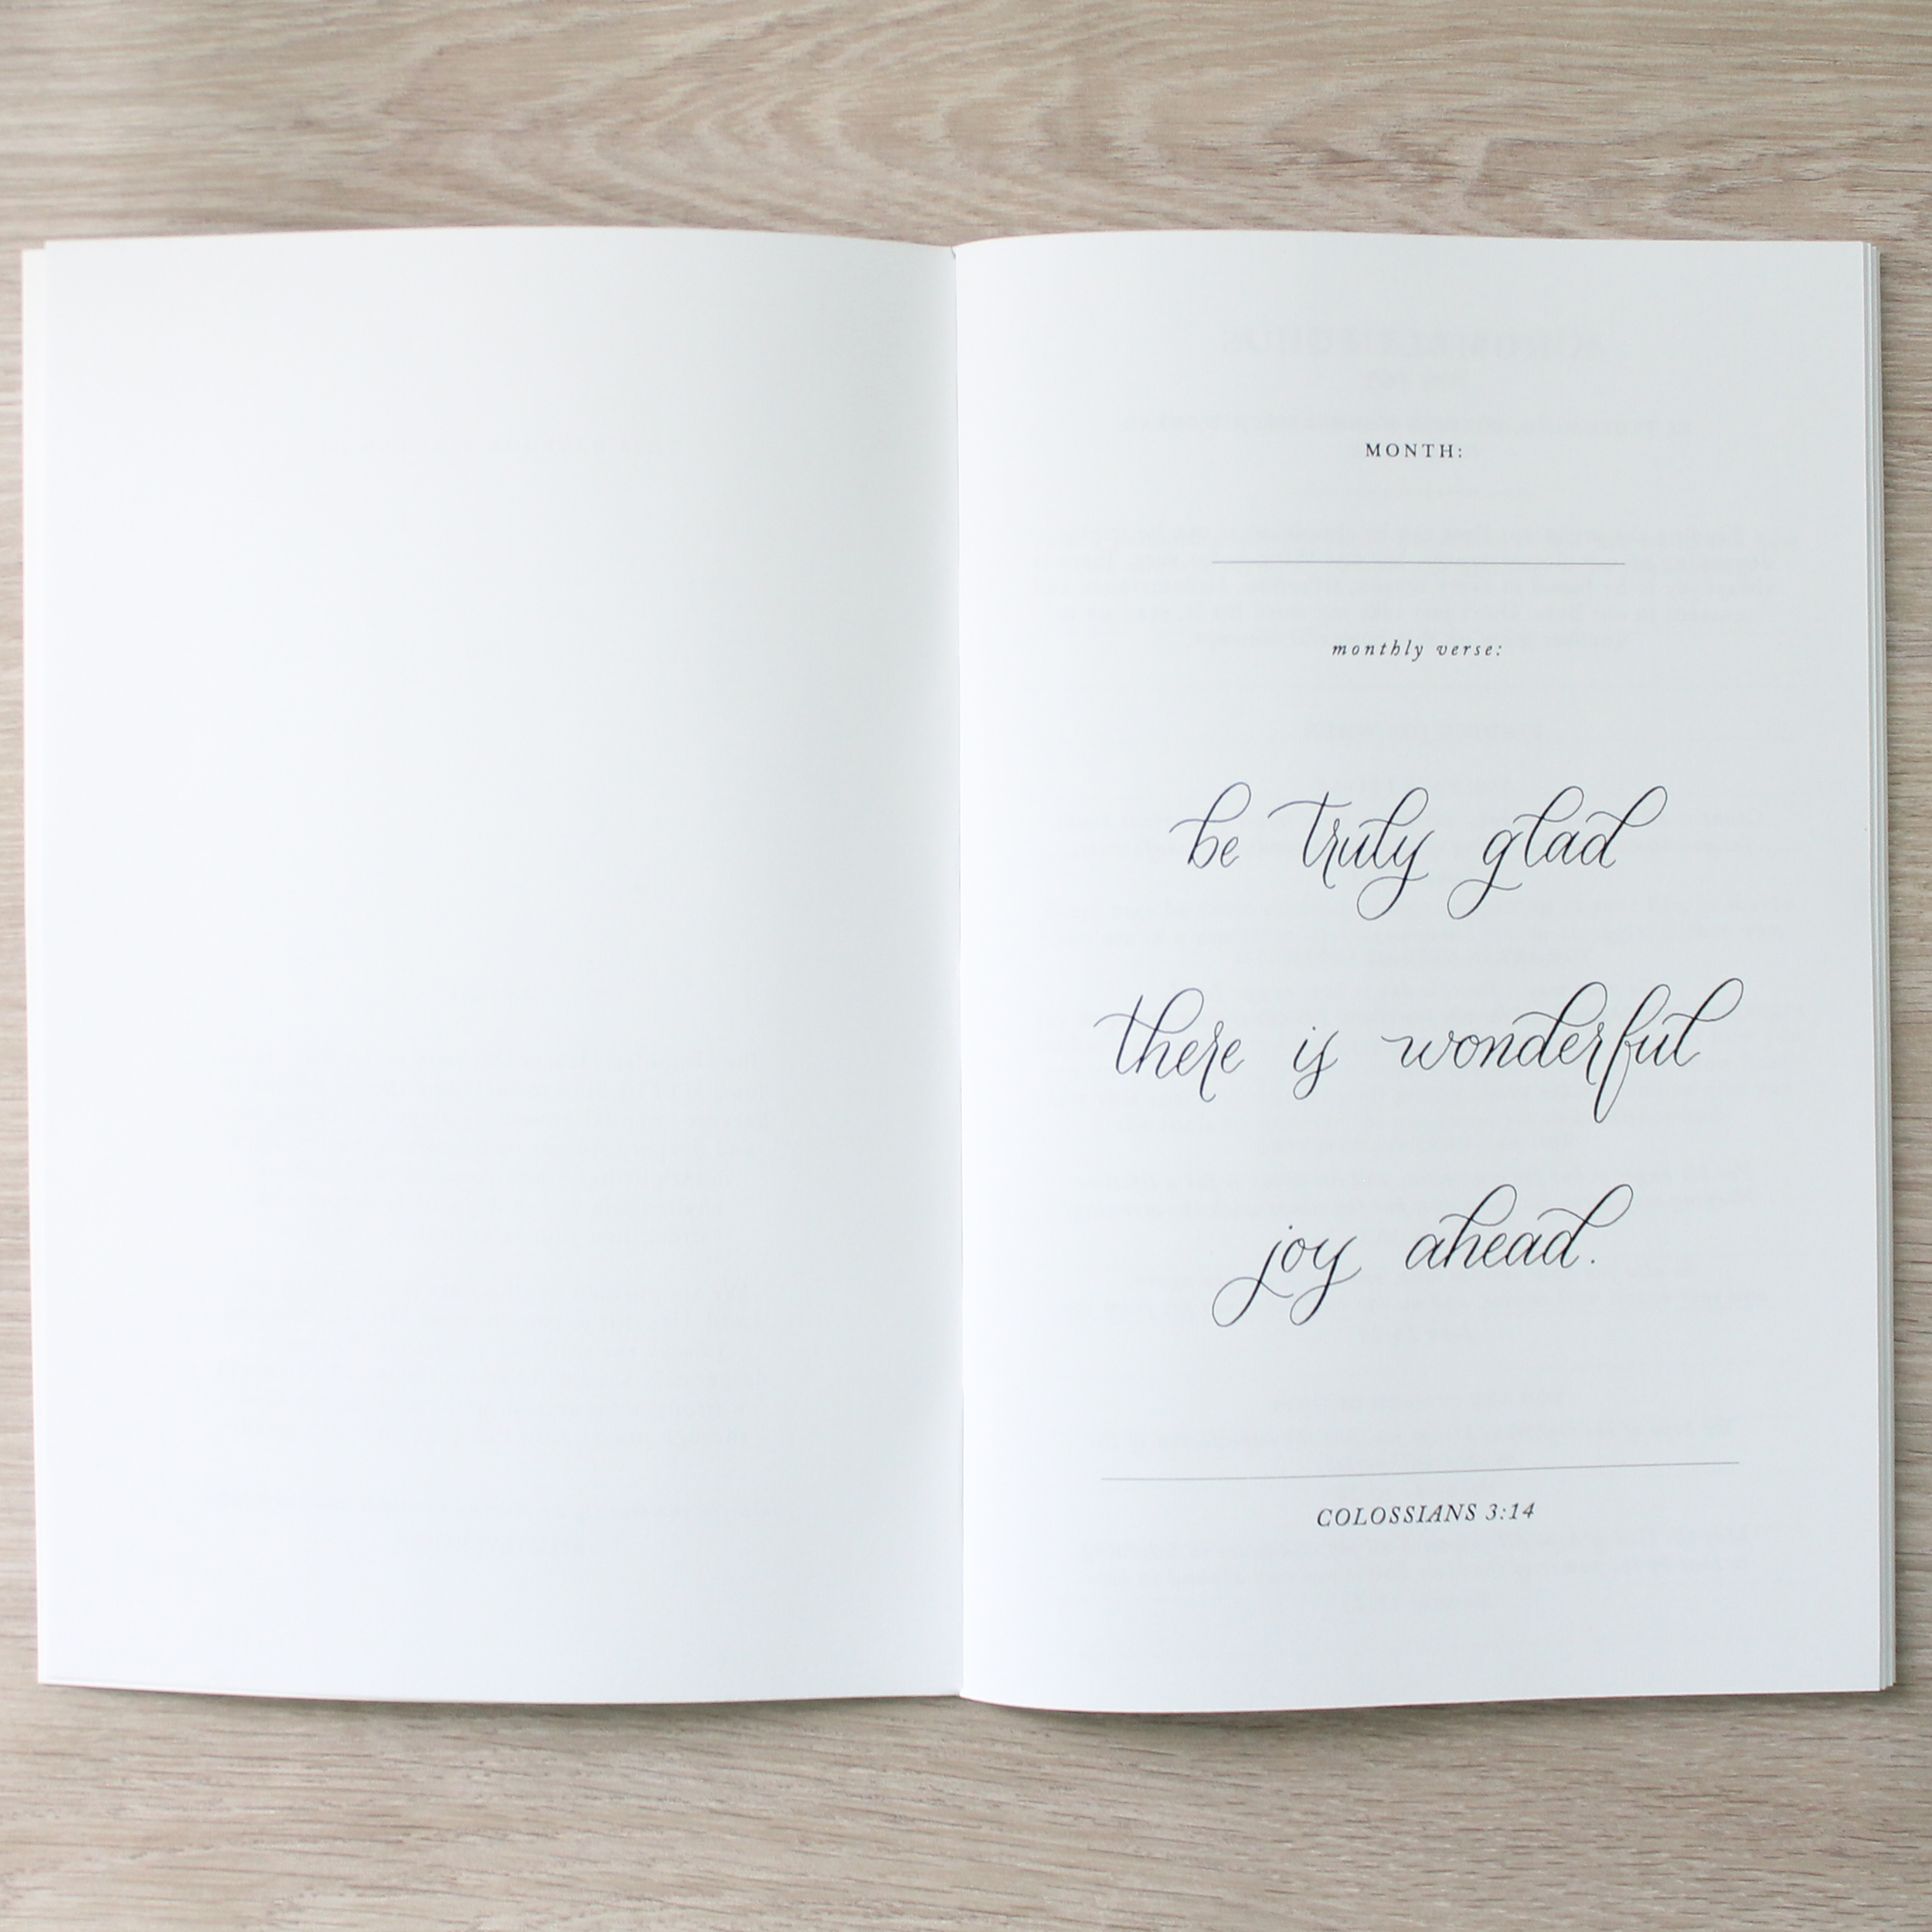 MONTH:
monthly verse:
be truly glad
there is wonderful
joy ahead.
COLOSSIANS 3:14